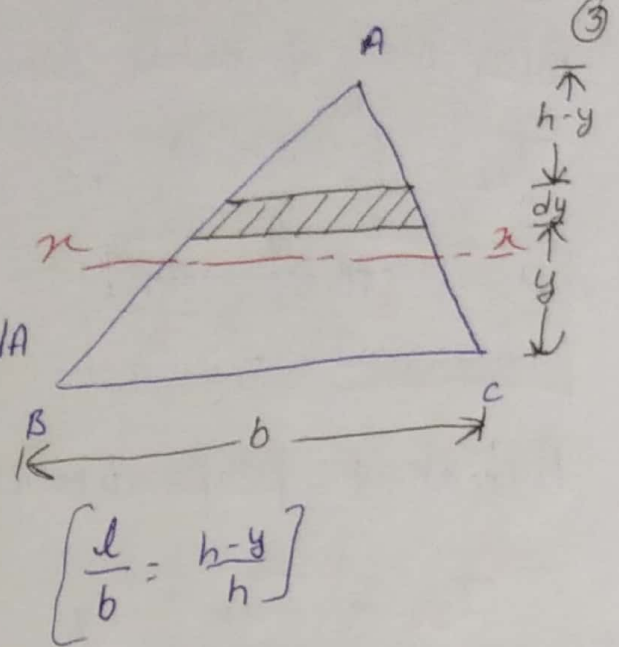 ③
A
h-y
dy
x x
y
/A
B C
b
[l/b = h-y/h]